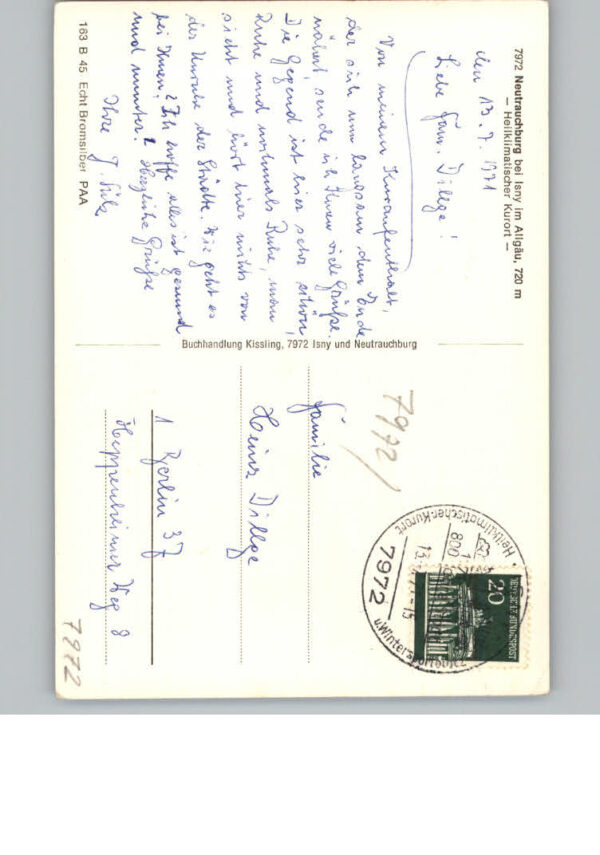 7972 Neutrauchburg bei Isny im Allgäu, 720 m
— Heilklimatischer Kurort —
den 13.7.1971
Liebe Fam. Dillge!
Von meinem Kuraufenthalt,
der sich nun langsam dem Ende
nähert, sende ich Ihnen viele Grüße.
Die Gegend ist hier sehr schön,
Ruhe und nochmals Ruhe, man
sieht und hört hier nichts von
der Unruhe der Städte. Wie geht es
bei Ihnen? Ich hoffe alles ist gesund
und munter. Herzliche Grüße
Ihre
163 B 45 Echt Bromsilber PAA
Buchhandlung Kissling, 7972 Isny und Neutrauchburg
7972
Heilklimatischer Kurort
7972
u. Wintersportplatz
800
13
15
20
DEUTSCHE BUNDESPOST
Familie
Heinz Dillge
1 Berlin 37
Heppenheimer Weg 8
7972